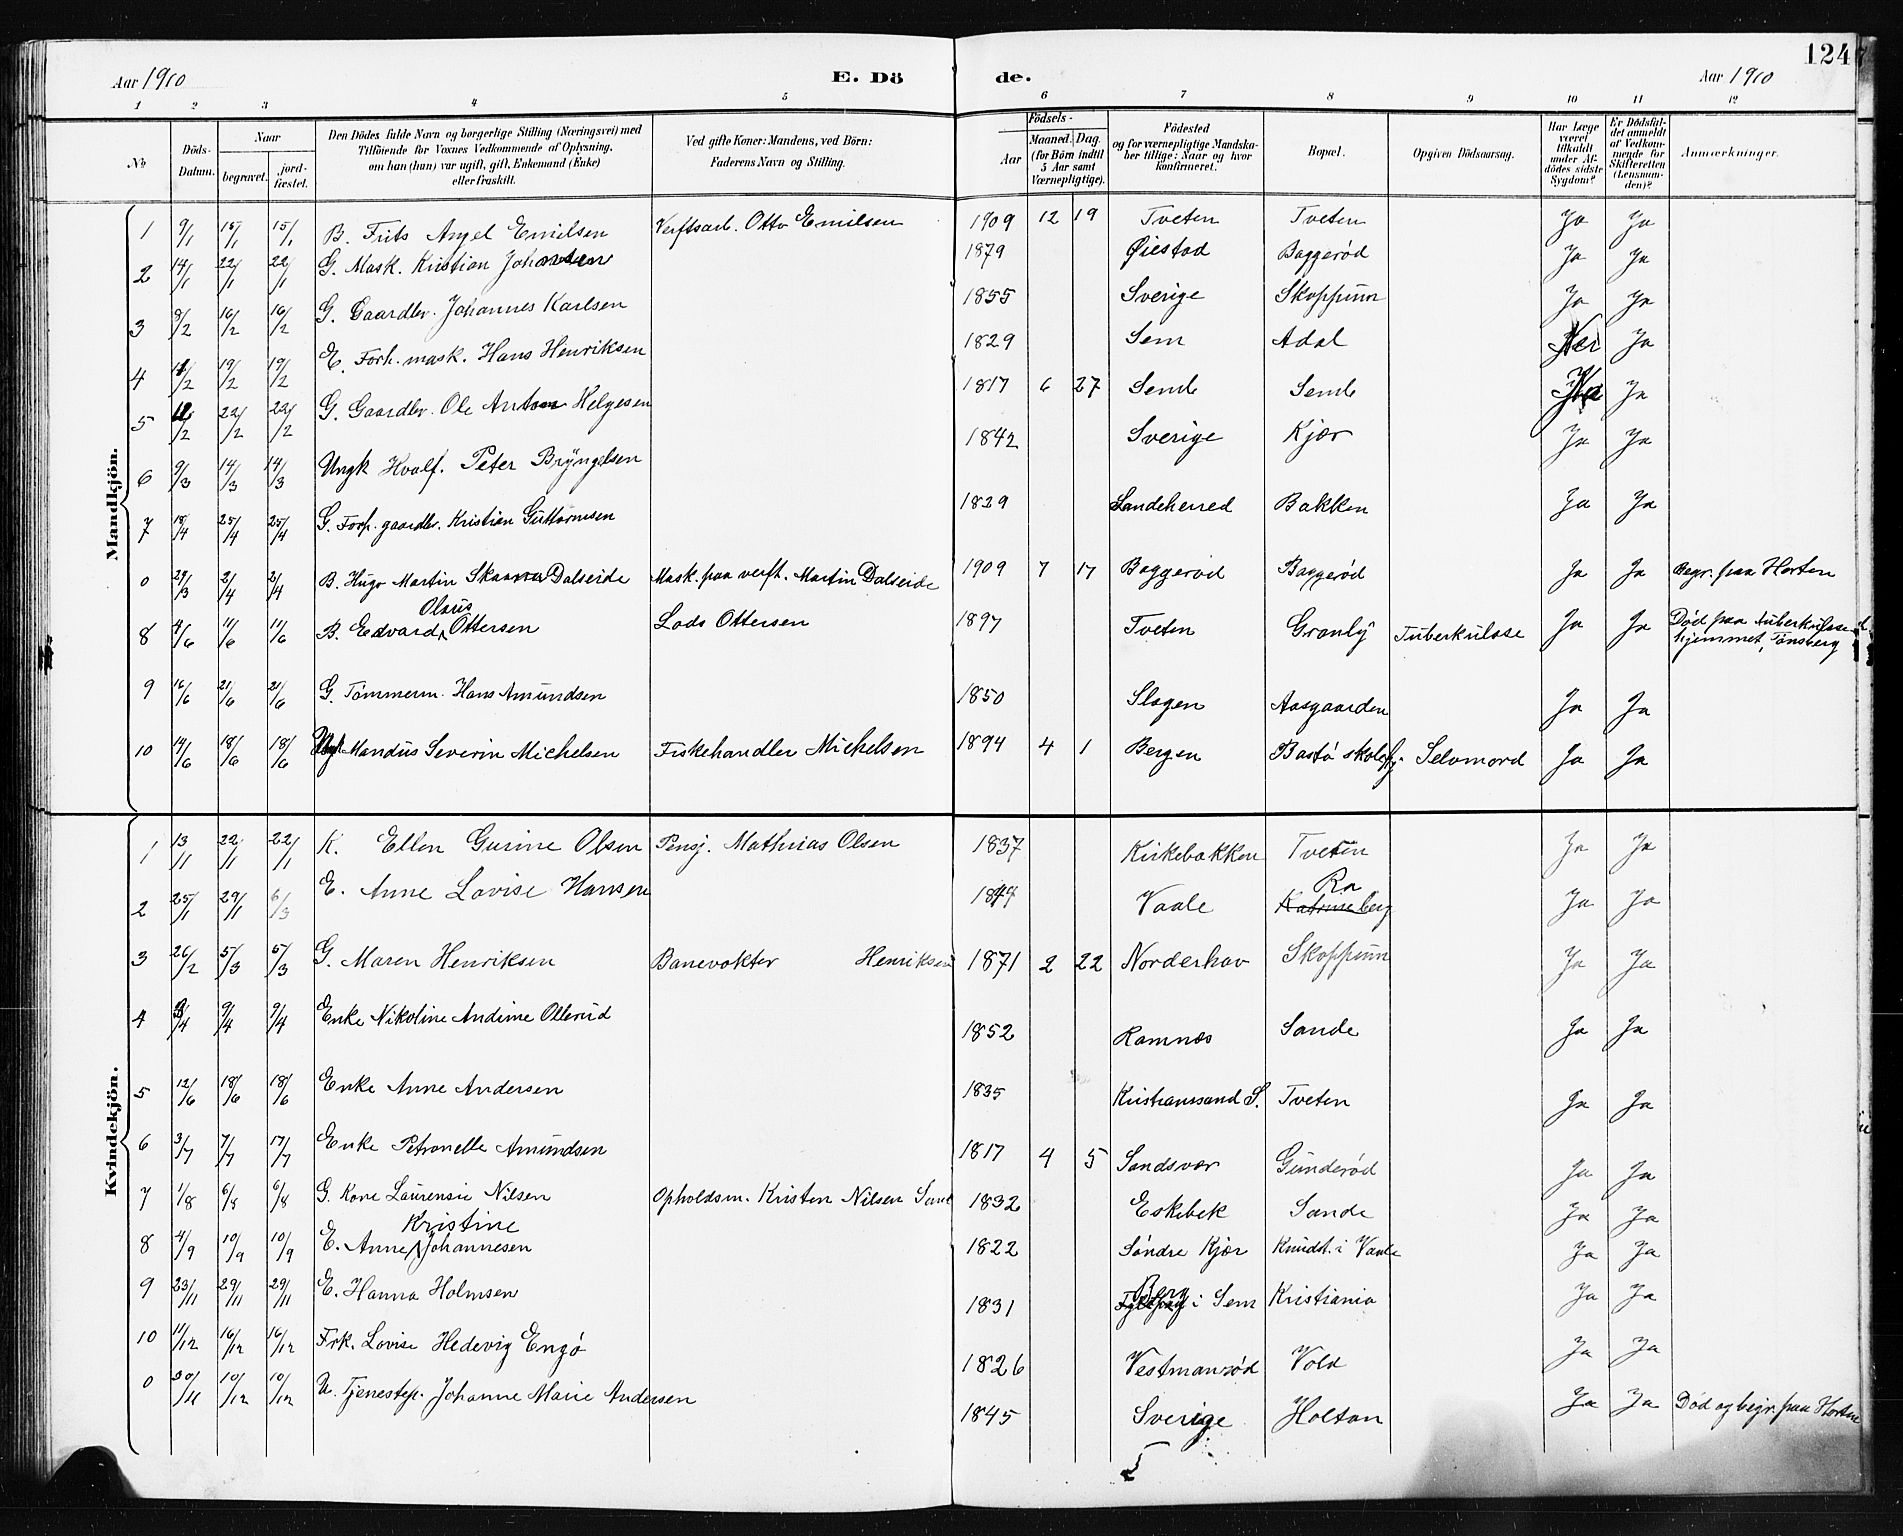 124
Aar 1910 E. Dö de. Aar 1910
1 2 3 4 5 6 7 8 9 10 11 12
No
Döds-Datum.
Naar
begravet. jordfæstet.
Den Dödes fulde Navn og borgerlige Stilling (Næringsvei) med
Tilföiende for Voxnes Vedkommende af Oplysning,
om han (hun) var ugift, gift, Enkemand (Enke)
eller fraskilt.
Ved gifte Koner: Mandens, ved Börn:
Faderens Navn og Stilling.
Födsels-
Aar Maaned. Dag.
(for Börn indtil
5 Aar samt
Værnepligtige).
Födested
og for værnepligtige Mandska-
ber tillige: Naar og hvor
konfirmeret.
Bopæl.
Opgiven Dödsaarsag.
Har Læge
været
tilkaldt
under Af-
dödes sidste
Sygdom?
Er Dödsfal-
det anmeldt
af Vedkom-
mende for
Skifteretten
(Lensman-
den)?
Anmærkninger.
Mandkjön.
1 9/1 15/1 15/1 B. Frits Angel Emilsen Verftsarb. Otto Emilsen 1909 12 19 Tveten Tveten Ja Ja
2 14/1 22/1 22/1 G. Mask. Kristian Johansen 1879 Øiestad Baggerød Ja Ja
3 9/2 16/2 16/2 G. Gaardbr. Johannes Karlsen 1855 Sverige Skoppum Ja Ja
4 /2 19/2 19/2 E. Forh. mask. Hans Henriksen 1829 Sem Adal Nei Ja
5 /2 22/2 22/2 G. Gaardbr. Ole Anton Helgesen 1817 6 27 Semb Semb Ja Ja
6 9/3 14/3 14/3 Ungk Hvalf. Peter Bryngelsen 1842 Sverige Kjær Ja Ja
7 18/4 25/4 25/4 G. Forh. gaardbr. Kristian Guttormsen 1829 Sandeherred Bakken Ja Ja
0 29/3 2/4 2/4 B. Hugo Martin Skaana Dalseide Mask. paa verft. Martin Dalseide 1909 7 17 Baggerød Baggerød Ja Ja Begr. paa Horten
8 4/6 11/6 11/6 B. Edvard Olaus Ottersen Lods Ottersen 1897 Tveten Granly Tuberkulose Ja Ja Død paa Tuberkulose-
hjemmet, Tønsberg
9 16/6 21/6 21/6 G. Tømmerm. Hans Amundsen 1850 Slagen Aasgaarden Ja Ja
10 14/6 18/6 18/6 Ungk. Mandus Severin Michelsen Fiskehandler Michelsen 1894 4 1 Bergen Bastø skolehj. Selvmord Ja Ja
Kvindekjön.
1 13/11 22/1 22/1 K. Ellen Gurine Olsen Pensj. Mathias Olsen 1837 Kirkebakken Tveten Ja Ja
2 25/1 29/1 6/3 E. Anne Lovise Hansen 1844 Vaale Ra Katrineberg Ja Ja
3 26/2 5/3 5/3 G. Maren Henriksen Banevokter Henriksen 1871 2 22 Norderhov Skoppum Ja Ja
4 3/4 9/4 9/4 Enke Nikoline Andine Ollerud 1852 Ramnes Sande Ja Ja
5 12/6 18/6 18/6 Enke Anne Andersen 1835 Kristianssand S. Tveten Ja Ja
6 3/7 7/7 17/7 Enke Petronelle Amundsen 1817 4 5 Sandsvær Gunderød Ja Ja
7 1/8 6/8 6/8 G. Kone Laurensie Nilsen Opholdsm. Kristen Nilsen Sand 1832 Eskebek Sande Ja Ja
8 4/9 10/9 10/9 E. Anne Kristine Johannesen 1822 Søndre Kjær Knudst. i Vaale Ja Ja
9 23/11 29/11 29/11 E. Hanna Holmsen 1831 Berg i Sem Kristiania Ja Ja
10 11/12 16/12 16/12 Frk. Lovise Hedevig Engø 1826 Vestmansrød Vold Ja Ja
0 30/11 10/12 10/12 U. Tjenestep. Johanne Marie Andersen 1845 Sverige Holtan Ja Ja Død og begr. paa Horten